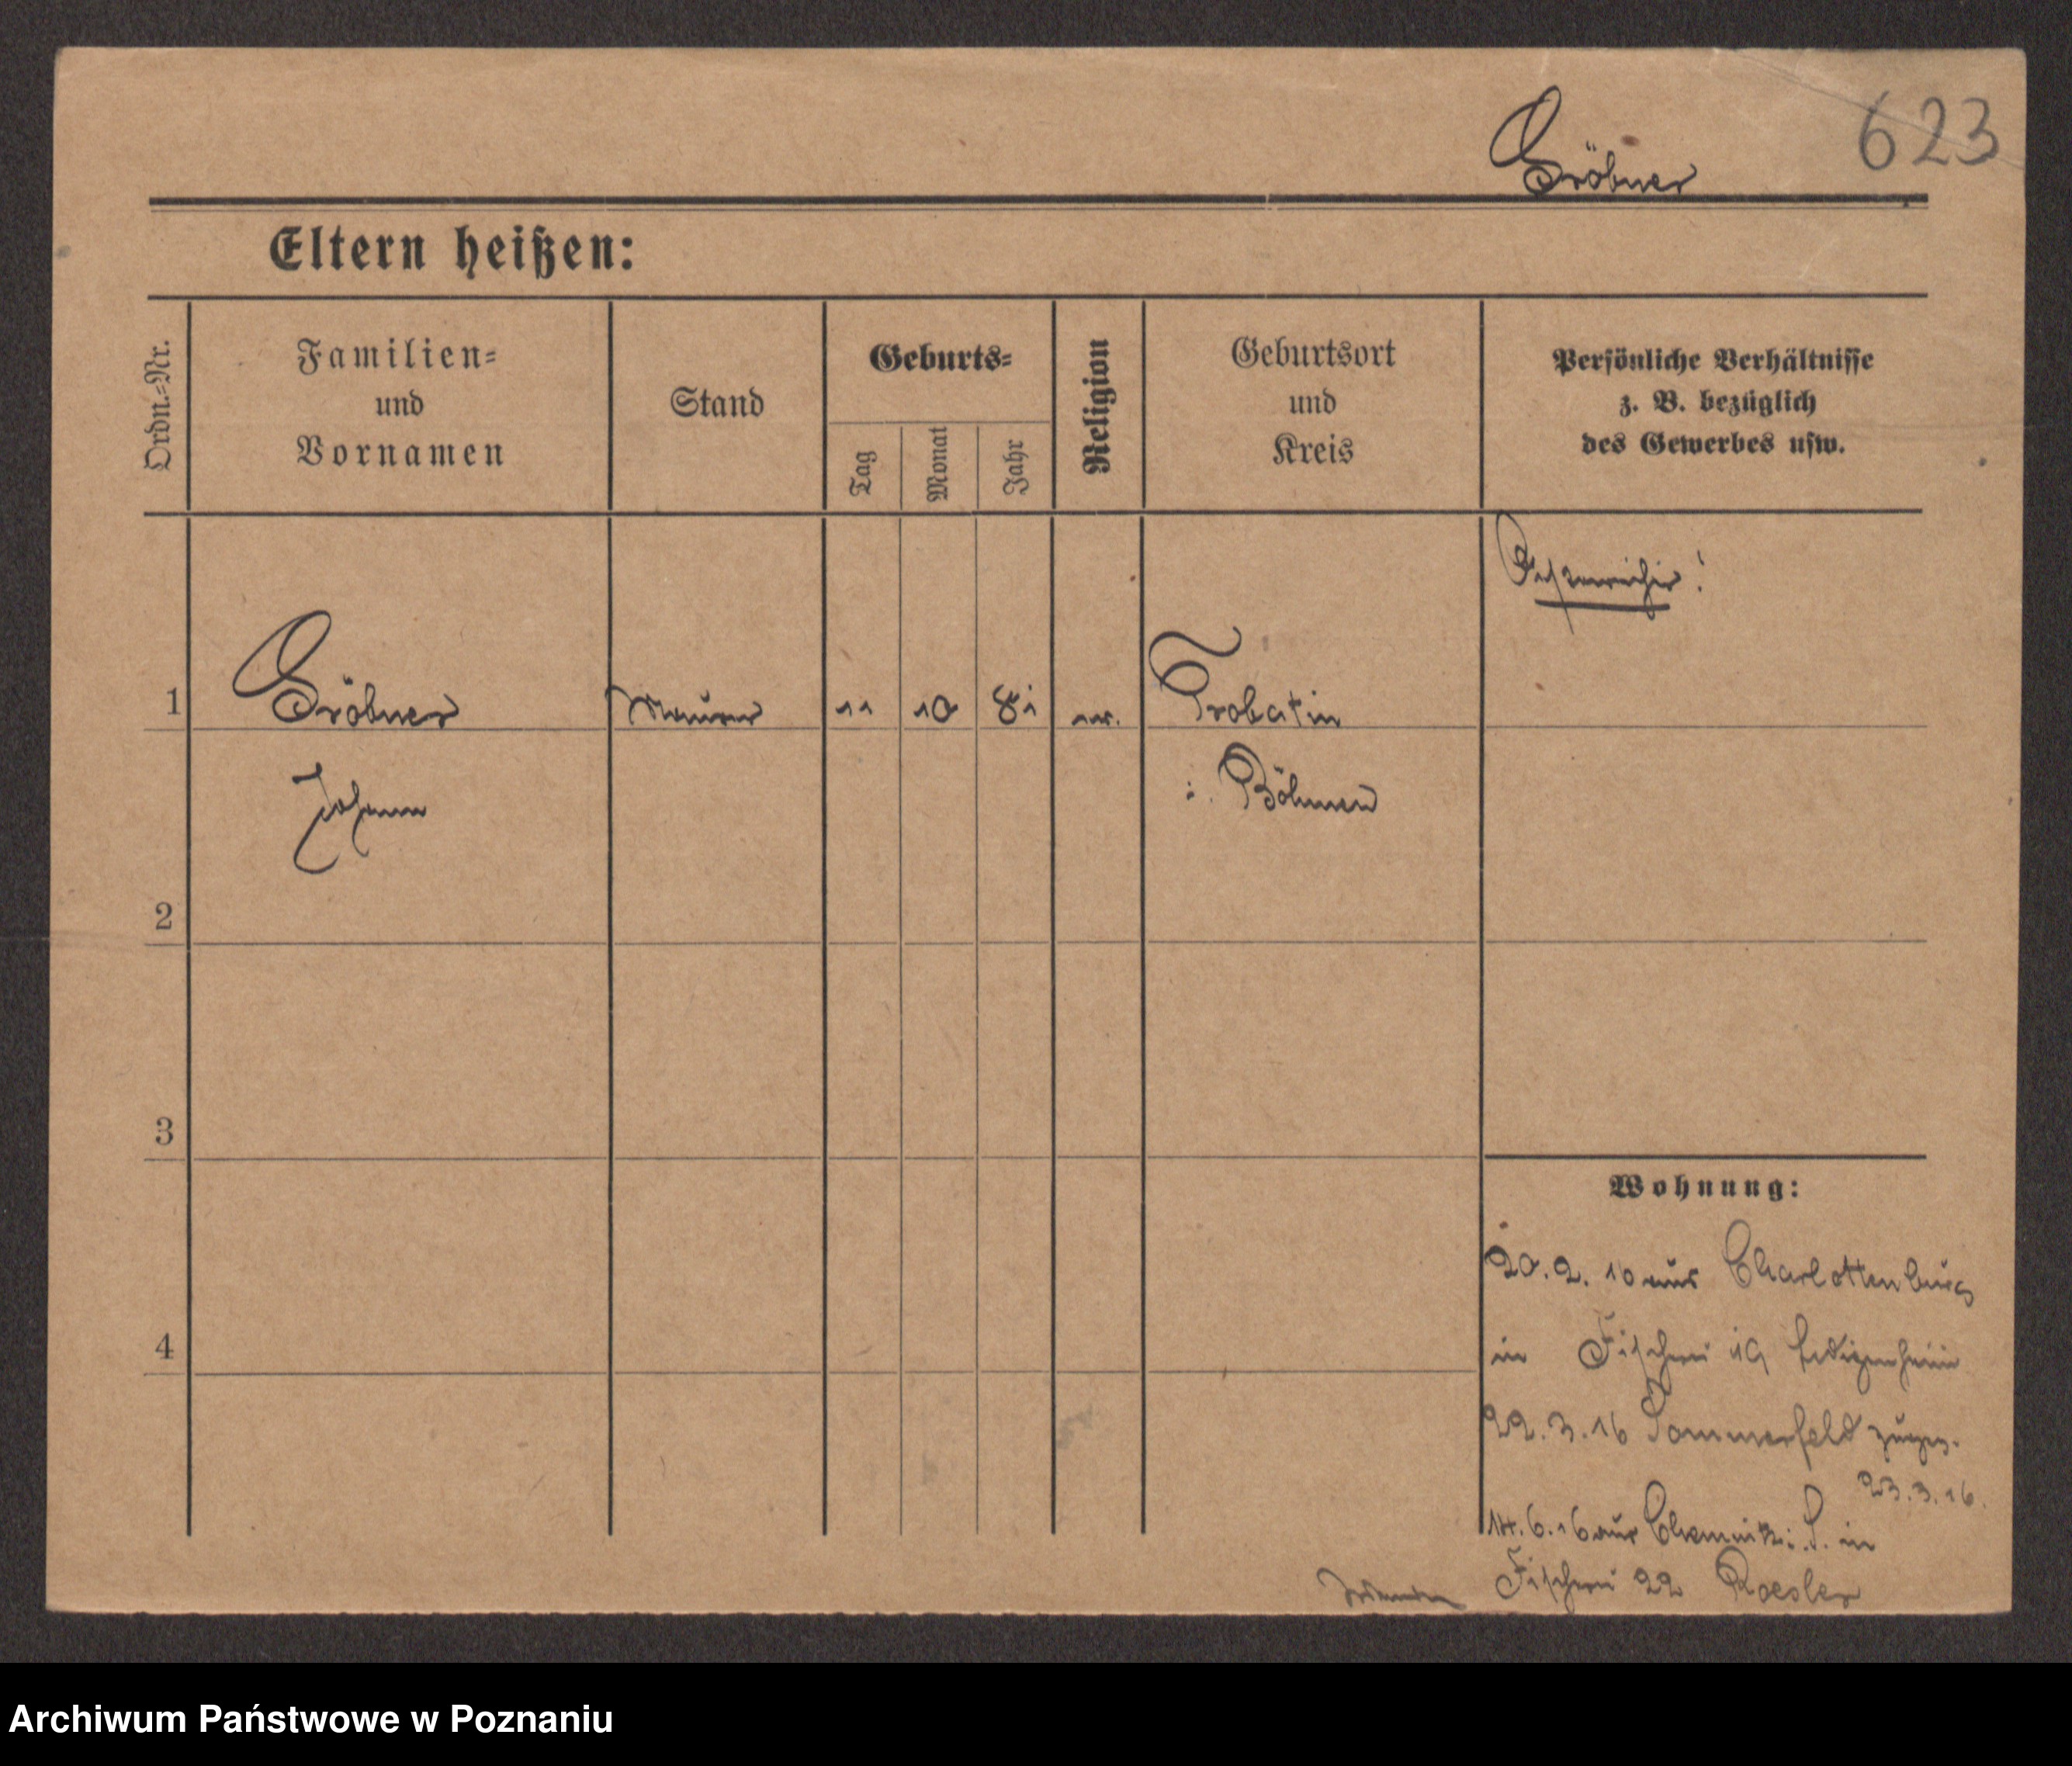 Gröbner 623
Eltern heißen:
Ordn.-Nr.
Familien-
und
Vornamen
Stand
Geburts-
Tag
Monat
Jahr
Religion
Geburtsort
und
Kreis
Persönliche Verhältnisse
z. B. bezüglich
des Gewerbes usw.
Österreicher!
1 Gröbner Maurer 11 10 81 Trobatin
Johann i. Böhmen
2
3
Wohnung:
20.2.16 aus Charlottenburg
4
in Fischerei 19 Ledigenheim
22.3.16 Sommerfeld
23.3.16.
14.6.16 aus Chemnitz i. S. in
Fischerei 22 Roesler
Archiwum Państwowe w Poznaniu